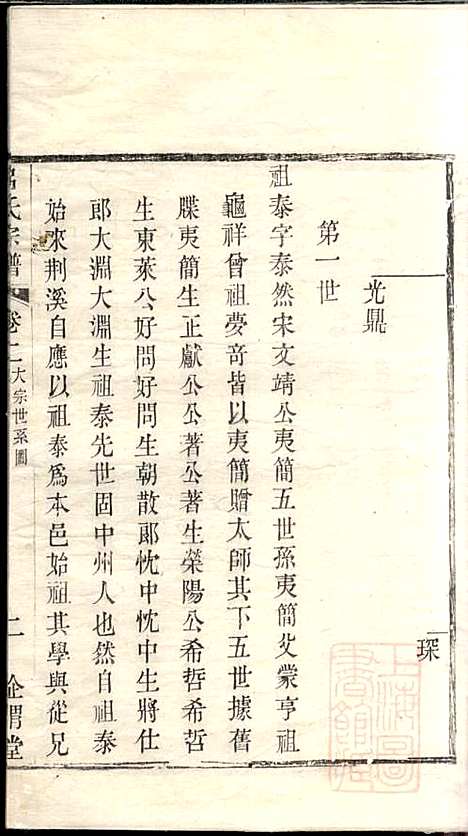 光鼎
琛
第一世
祖泰字泰然宋文靖公夷簡五世孫夷簡父蒙亨祖
龜祥曾祖夢奇皆以夷簡贈太師其下五世據舊
牒夷簡生正獻公公著公著生榮陽公希哲希哲
生東萊公好問好問生朝散郎忱中忱中生將仕
郎大淵大淵生祖泰先世固中州人也然自祖泰
始來荆溪自應以祖泰爲本邑始祖其學與從兄
呂氏宗譜 卷二 大宗世系圖 二 企渭堂
上海圖書館藏